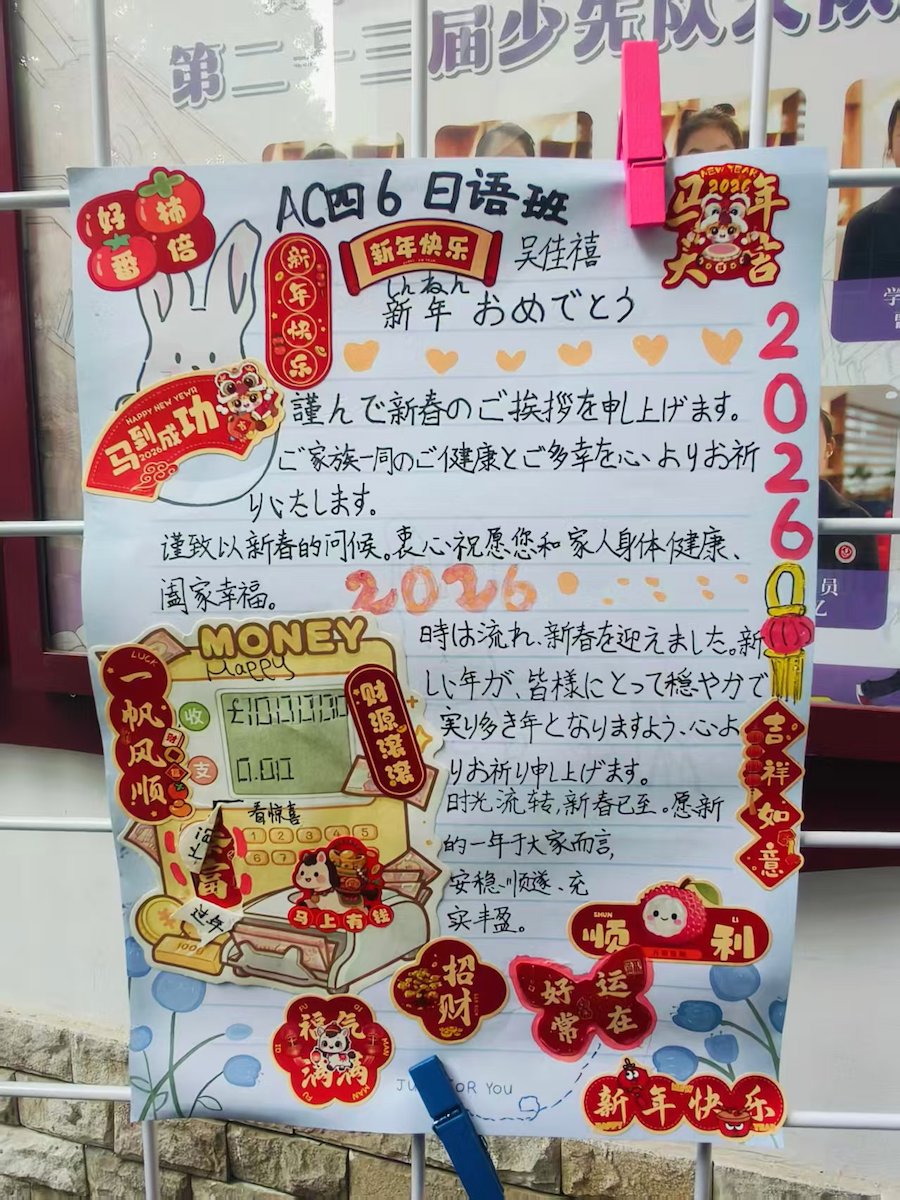 第二十三届少先队大队
好柿
番倍
AC四6日语班
新年快乐
新年快乐
吴佳禧
NEW YEAR
2026
马年
大吉
しんねん
新年 おめでとう
2026
HAPPY NEW YEAR
马到成功
2026
謹んで新春のご挨拶を申し上げます。
ご家族一同のご健康とご多幸を心よりお祈
りいたします。
谨致以新春的问候。衷心祝愿您和家人身体健康、
阖家幸福。
2026
MONEY
Happy
LUCK
一帆风顺
收
£1000000
支
0.00
财源滚滚
看惊喜
1 2 3 4 5
6 7
马上有钱
100g
時は流れ、新春を迎えました。新
しい年が、皆様にとって穏やかで
実り多き年となりますよう、心よ
りお祈り申し上げます。
时光流转,新春已至。愿新
的一年于大家而言,
安稳顺遂、充
实丰盈。
吉祥如意
SHUN
LI
顺利
招财
好运
常在
FU
QI
福气
满满
MAN
MAN
JUST FOR YOU
新年快乐
HAPPY
NEW
YEAR
员